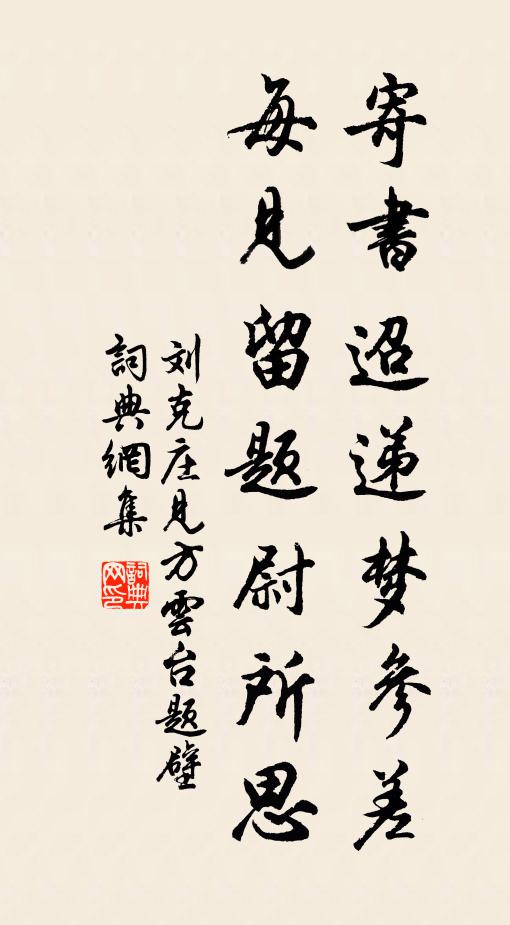 寄書迢递梦參差
每見留题尉所思
刘克庄見方雲台题壁
詞典網集
詞典网印